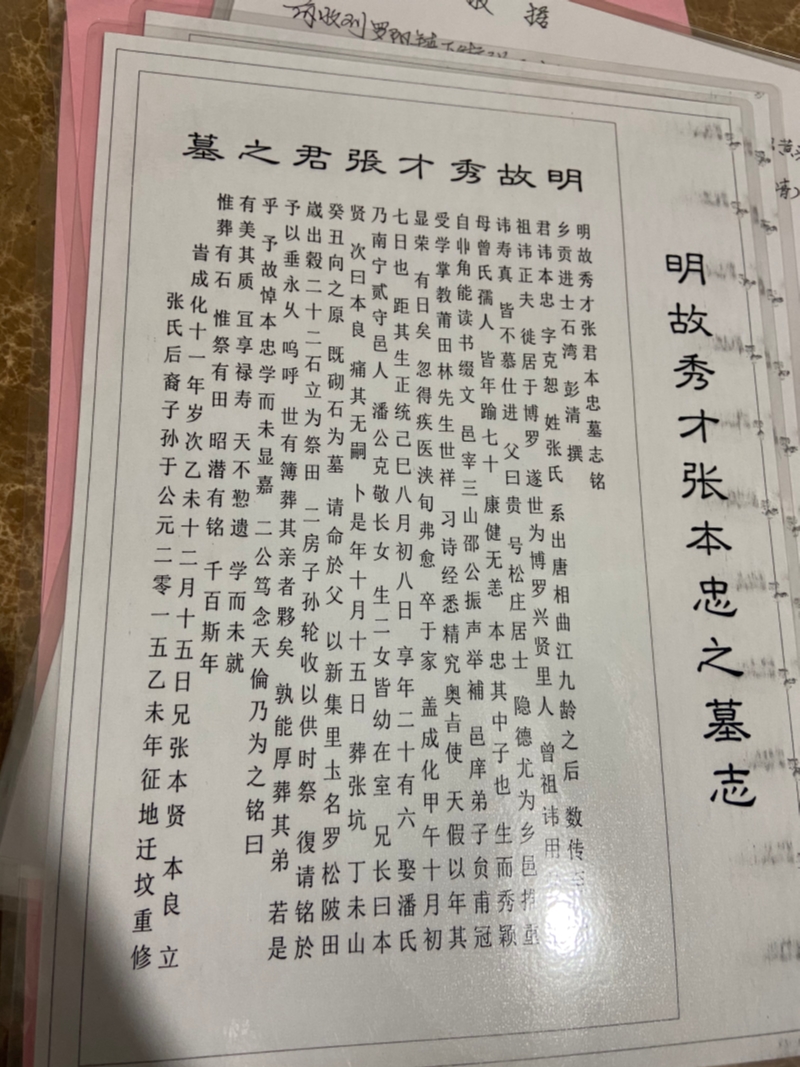 明故秀才张本忠之墓志
明故秀才張君之墓
明故秀才张君本忠墓志铭
乡贡进士石湾 彭清 撰
君讳本忠 字克恕 姓张氏 系出唐相曲江九龄之后 数传
祖讳正夫 徙居于博罗 遂世为博罗兴贤里人 曾祖讳用
讳寿真 皆不慕仕进 父曰贵 号松庄居士 隐德尤为乡邑推重
母曾氏孺人 皆年踰七十 康健无恙 本忠其中子也 生而秀颖
自丱角能读书缀文 邑宰三山邵公振声举補 邑庠弟子贠甫冠
受学掌教莆田林先生世祥 习诗经悉精究奥旨使 天假以年其
显荣 有日矣 忽得疾医浃旬弗愈 卒于家 盖成化甲午十月初
七日也 距其生正统己巳八月初八日 享年二十有六 娶潘氏
乃南宁贰守邑人 潘公克敬长女 生二女皆幼在室 兄长曰本
贤 次曰本良 痛其无嗣 卜是年十月十五日 葬张坑 丁未山
癸丑向之原 既砌石为墓 请命於父 以新集里圡名罗松陂田
歲出榖二十二石立为祭田 二房子孙轮收以供时祭 復请铭於
予以垂永乆 呜呼 世有簿葬其亲者夥矣 孰能厚葬其弟 若是
乎 予故悼本忠学而未显嘉 二公笃念天倫乃为之铭曰
有美其质 冝享禄寿 天不慭遗 学而未就
惟葬有石 惟祭有田 昭潜有铭 千百斯年
旹成化十一年岁次乙未十二月十五日兄张本贤 本良 立
张氏后裔子孙于公元二零一五乙未年征地迁坟重修